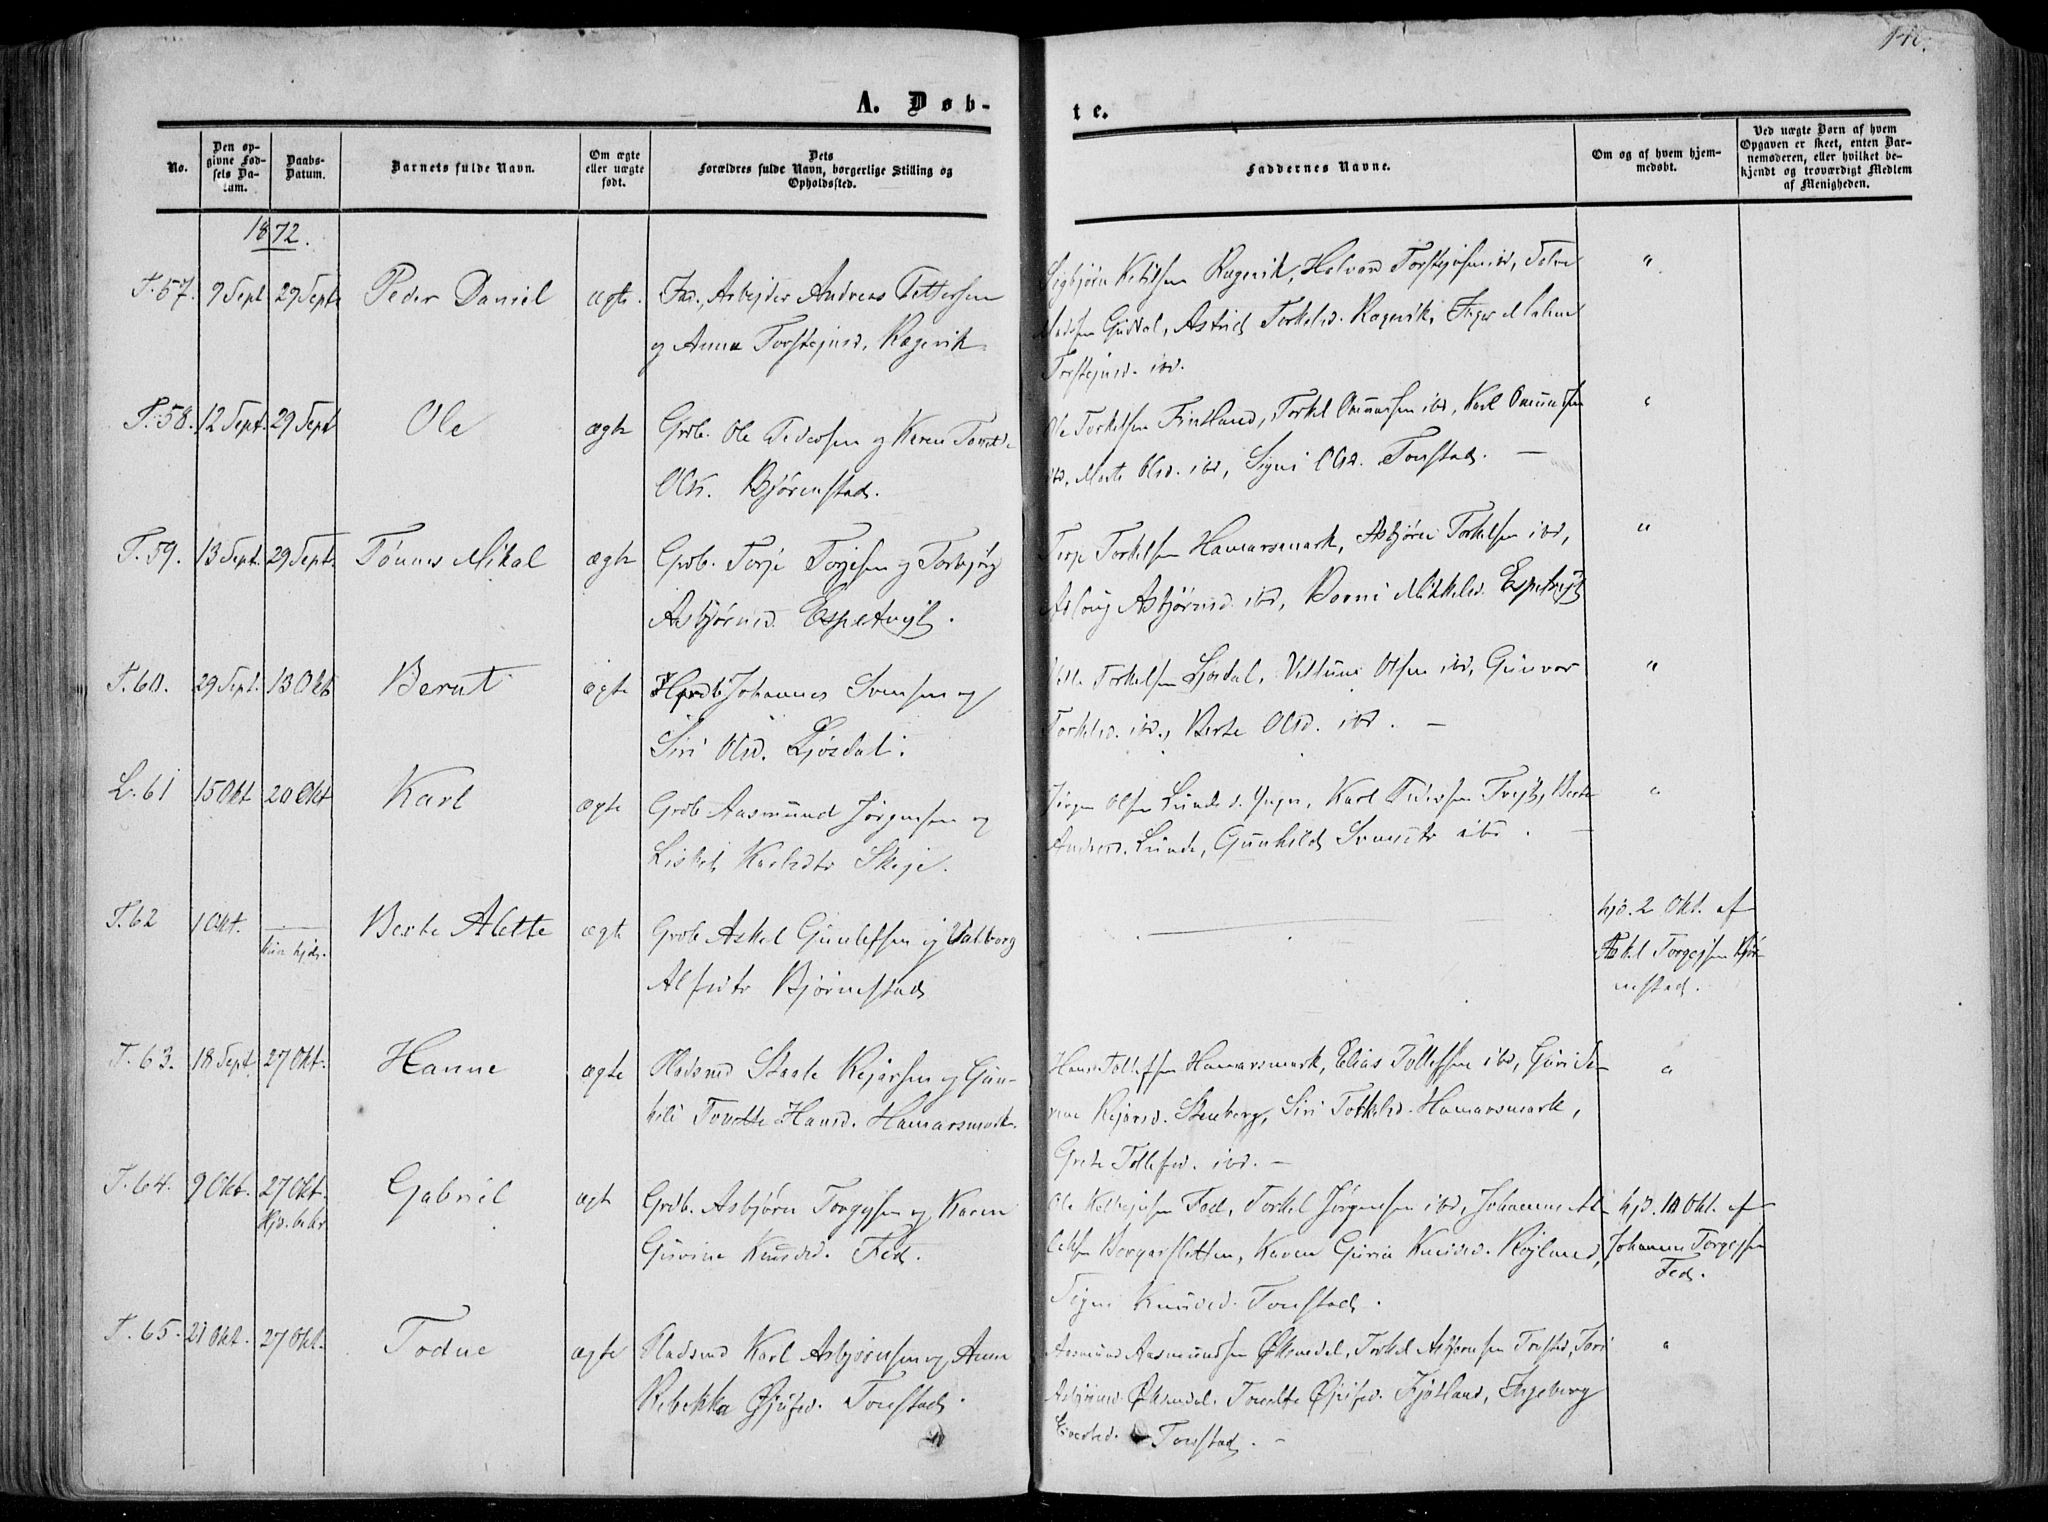 A. Døb-
te.
No.
Den opgivne Fødsels Datum.
Daabs-Datum.
Barnets fulde Navn.
Om ægte eller uægte født.
Dets Forældres fulde Navn, borgerlige Stilling og Opholdssted.
Faddernes Navne.
Om og af hvem hjemmedøbt.
Ved uægte Børn af hvem Opgaven er skeet, enten Barnemoderen, eller hvilket bekjendt og troværdigt Medlem af Menigheden.
1872.
T. 57. 9 Sept 29 Sept Peder Daniel ægte.
Arbejder Andreas Pettersen
og Anna Torstejnsd. Ragevik
Sigbjørn Ketilsen Ragevik, Halvard Torstejnsen ibd,
Gusdal, Astrid Torkelsd. Ragevik,
Torstejnsd. ibd.
"
T. 58. 12 Sept. 29 Sept Ole ægte
Grdb. Ole Pedersen og Karen Tonette
Olsd. Bjørnestad.
Ole Torkelsen Fintland, Torkel Omundsen ibd, Karl Omundsen
ibd, Marte Olsd. ibd, Signi Olsd. Tonstad. —
"
T. 59. 13 Sept. 29 Sept. Tønnes Mikal ægte
Grdb. Torje Torjesen og Torbjørg
Asbjørnsd. Espetvejt.
Torje Torkelsen Hamarsmark, Asbjørn Torkelsen ibd,
Aslaug Asbjørnsd. ibd, Mikkelsd. Espetvejt
"
T. 60. 29 Sept. 13 Okt Bernt ægte
Johannes Svensen og
Siri Olsd. Ljosdal.
Torkelsen Ljosdal, Olsen ibd, Gunvor
Torkelsd. ibd., Berte Olsd. ibd. —
"
L. 61 15 Okt 20 Okt Karl ægte
Grdb Aasmund Jørgensen og
Lisbet Karlsdtr Skeje.
Jørgen Olsen Lunde d. yngr, Karl Pedersen Tvejt, Berte
Andersd. Lunde, Gunhild Svensdtr ibd. —
"
T. 62 1 Okt. — Berte Alette ægte
kun hjdt.
Grdb Askel Gunlefsen og Valborg
Alfsdtr Bjørnestad
hjd. 2 Okt. af
Askel Torgejsen Bjør-
nestad.
T. 63. 18 Sept. 27 Okt. Hanne ægte
Pladsmd Staale Rejersen og Gun-
hild Tonette Hansd. Hamarsmark.
Hans Tollefsen Hamarsmark, Elias Tollefsen ibd, Guri Se-
rine Rejersd. Stenberg, Siri Torkelsd. Hamarsmark,
Grete Tollefsd. ibd. —
"
T. 64. 9 Okt. 27 Okt. Gabriel ægte
Hjd. bekr
Grdb. Asbjørn Torgejsen og Karen
Gurine Knudsd. Fed.
Ole Fed, Torkel Jørgensen ibd, Johannes
Borgarslotten, Karen Guria Knudsd. Røjland,
Signi Knudsd. Tonstad.
hjd. 10 Okt. af
Johannes Torgejsen
Fed.
T. 65. 21 Okt. 27 Okt. Todne ægte
Pladsmd Karl Asbjørnsen og Anne
Rebekka Øjufsd. Tonstad.
Aasmund Aasmundsen Øksendal, Torkel Asbjørnsen Tonstad, Tori
Asbjørnsd. Øksendal, Tonette Øjufsd. Fjotland, Ingeborg
Tonstad. —
"